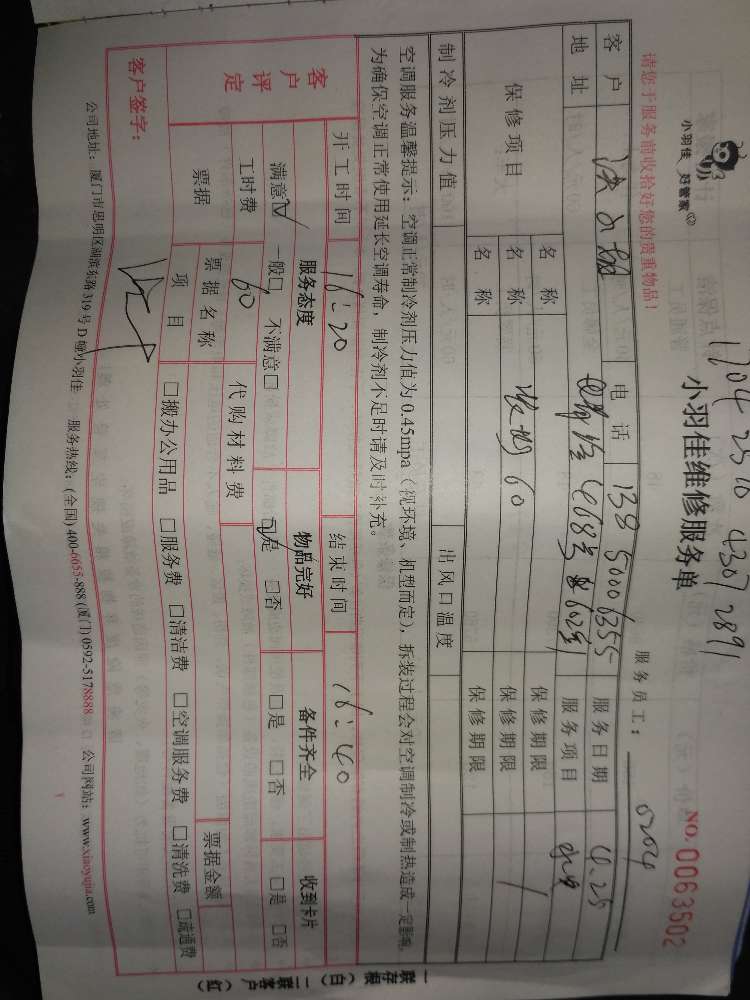 小羽佳 好管家
1704 2510 4307 2891
小羽佳维修服务单
NO. 0063502
请您于服务前收拾好您的贵重物品！
服务员工： 0204
客户 电话 138 5000 6355 服务日期 4.25
地址 服务项目
保修项目 名称 保修期限
名称 60 保修期限 /
名称 保修期限
制冷剂压力值 出风口温度
空调服务温馨提示：空调正常制冷剂压力值为0.45mpa（视环境、机型而定），拆装过程会对空调制冷或制热造成一定影响。
为确保空调正常使用延长空调寿命，制冷剂不足时请及时补充。
客户评定
开工时间 16:20 结束时间 16:40
服务态度 物品完好 备件齐全 收到卡片
满意☑ 一般□ 不满意□ ☑是 □否 □是 □否 □是 □否
工时费 60 代购材料费
票据 票据名称 票据金额
项目 □搬办公用品 □服务费 □清洁费 □空调服务费 □清洗费 □疏通费
客户签字：
公司地址：厦门市思明区湖滨东路319号D幢小羽佳 服务热线：(全国) 400-6655-888 (厦门) 0592-5178888 公司网站：www.xiaoyujia.com
一联存根（白） 二联客户（红）